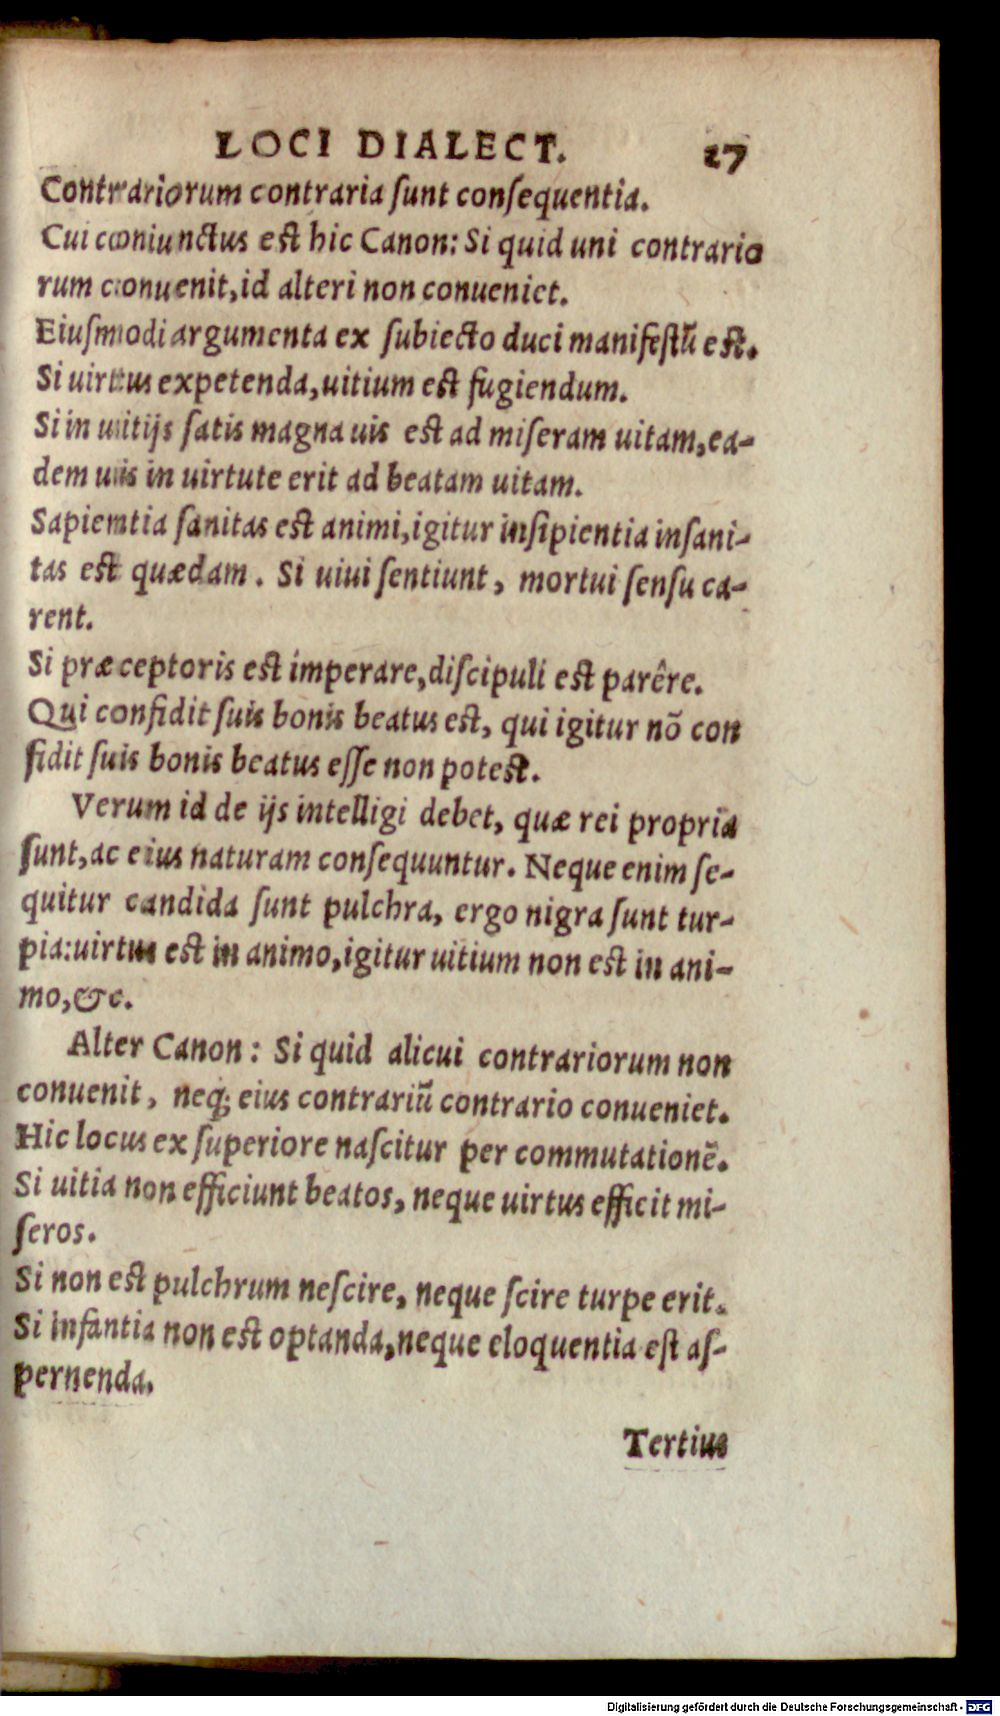 LOCI DIALECT. 27
Contrariorum contraria ſunt conſequentia.
Cui coniunctus eſt hic Canon: Si quid uni contrario
rum conuenit, id alteri non conueniet.
Eiuſmodi argumenta ex ſubiecto duci manifeſtũ eſt.
Si uirtus expetenda, uitium eſt fugiendum.
Si in uitijs ſatis magna uis eſt ad miſeram uitam, ea-
dem uis in uirtute erit ad beatam uitam.
Sapientia ſanitas eſt animi, igitur inſipientia inſani-
tas eſt quædam. Si uiui ſentiunt, mortui ſenſu ca-
rent.
Si præceptoris eſt imperare, diſcipuli eſt parêre.
Qui confidit ſuis bonis beatus eſt, qui igitur nõ con
fidit ſuis bonis beatus eſſe non poteſt.
Verum id de ijs intelligi debet, quæ rei propria
ſunt, ac eius naturam conſequuntur. Neque enim ſe-
quitur candida ſunt pulchra, ergo nigra ſunt tur-
pia: uirtus eſt in animo, igitur uitium non eſt in ani-
mo, &c.
Alter Canon: Si quid alicui contrariorum non
conuenit, neq; eius contrariũ contrario conueniet.
Hic locus ex ſuperiore naſcitur per commutationẽ.
Si uitia non efficiunt beatos, neque uirtus efficit mi-
ſeros.
Si non eſt pulchrum neſcire, neque ſcire turpe erit.
Si infantia non eſt optanda, neque eloquentia eſt aſ-
pernenda.
Tertius
Digitalisierung gefördert durch die Deutsche Forschungsgemeinschaft - DFG